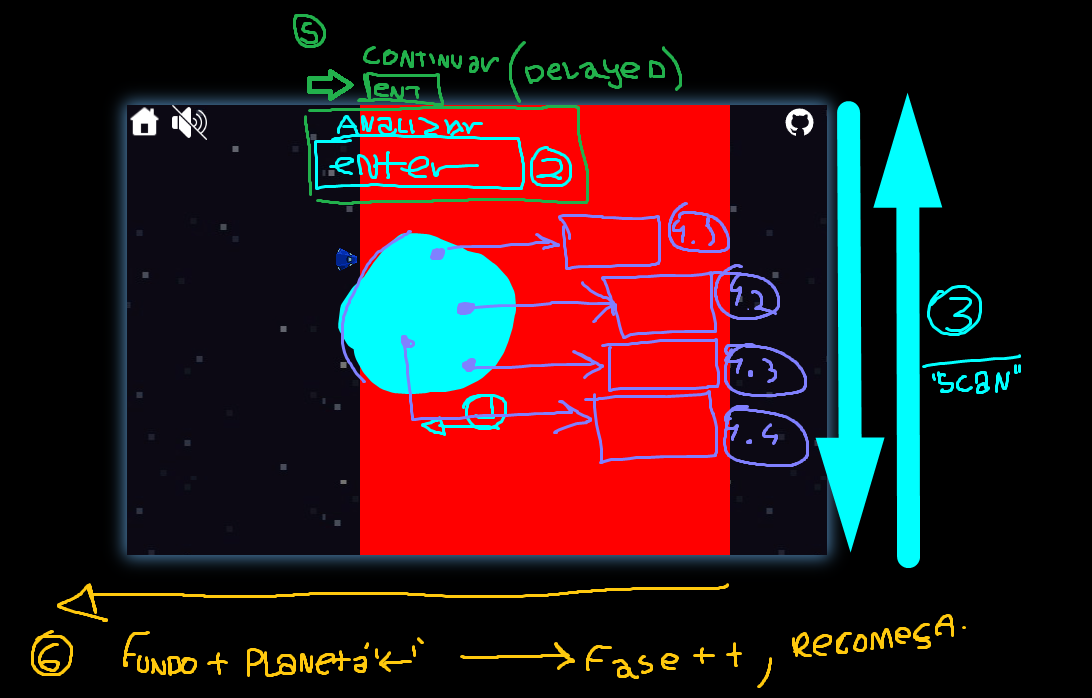 5
CONTINUAR (DELAYED)
ENT
ANALIZAR
enter
2
4.1
4.2
3
"SCAN"
4.3
1
4.4
6 FUNDO + PLANETA '←' → Fase ++, RECOMEÇA.